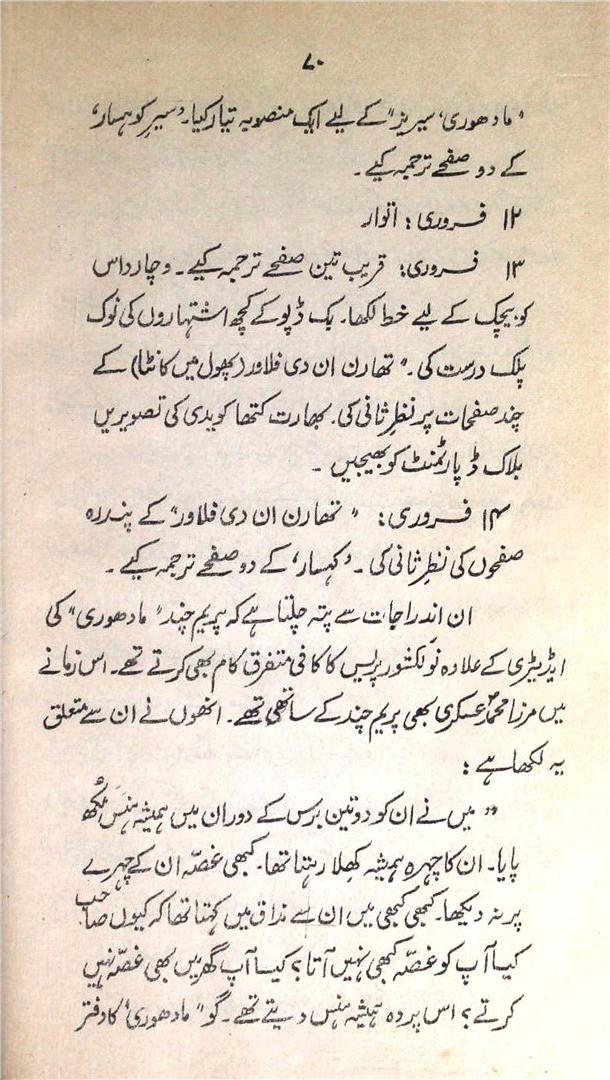 ۷۰
"مادھوری، سیریز" کے لیے ایک منصوبہ تیار کیا۔ 'سیرِ کوہسار'
کے دو صفحے ترجمہ کیے۔
۱۲ فروری: اتوار
۱۳ فروری: قریب تین صفحے ترجمہ کیے۔ وچارداس
کو بیچک کے لیے خط لکھا۔ بک ڈپو کے کچھ اشتہاروں کی نوک
پلک درست کی۔ "تھارن ان دی فلاور (پھول میں کانٹا) کے
چند صفحات پر نظرِ ثانی کی۔ بھارت کتھا کویدی کی تصویریں
بلاک ڈپارٹمنٹ کو بھیجیں۔
۱۴ فروری: "تھارن ان دی فلاور" کے پندرہ
صفحوں کی نظرِ ثانی کی۔ 'کہسار' کے دو صفحے ترجمہ کیے۔
ان اندراجات سے پتہ چلتا ہے کہ پریم چند "مادھوری" کی
ایڈیٹری کے علاوہ نولکشور پریس کا کافی متفرق کام بھی کرتے تھے۔ اس زمانے
میں مرزا محمد عسکری بھی پریم چند کے ساتھی تھے۔ انھوں نے ان سے متعلق
یہ لکھا ہے:
"میں نے ان کو دو تین برس کے دوران میں ہمیشہ ہنس مُکھ
پایا۔ ان کا چہرہ ہمیشہ کھِلا رہتا تھا۔ کبھی غصّہ ان کے چہرے
پر نہ دیکھا۔ کبھی کبھی میں ان سے مذاق میں کہتا تھا کہ کیوں صاحب
کیا آپ کو غصّہ کبھی نہیں آتا؟ کیا آپ گھر میں بھی غصّہ نہیں
کرتے؟ اس پر وہ ہمیشہ ہنس دیتے تھے۔ گو "مادھوری' کا دفتر